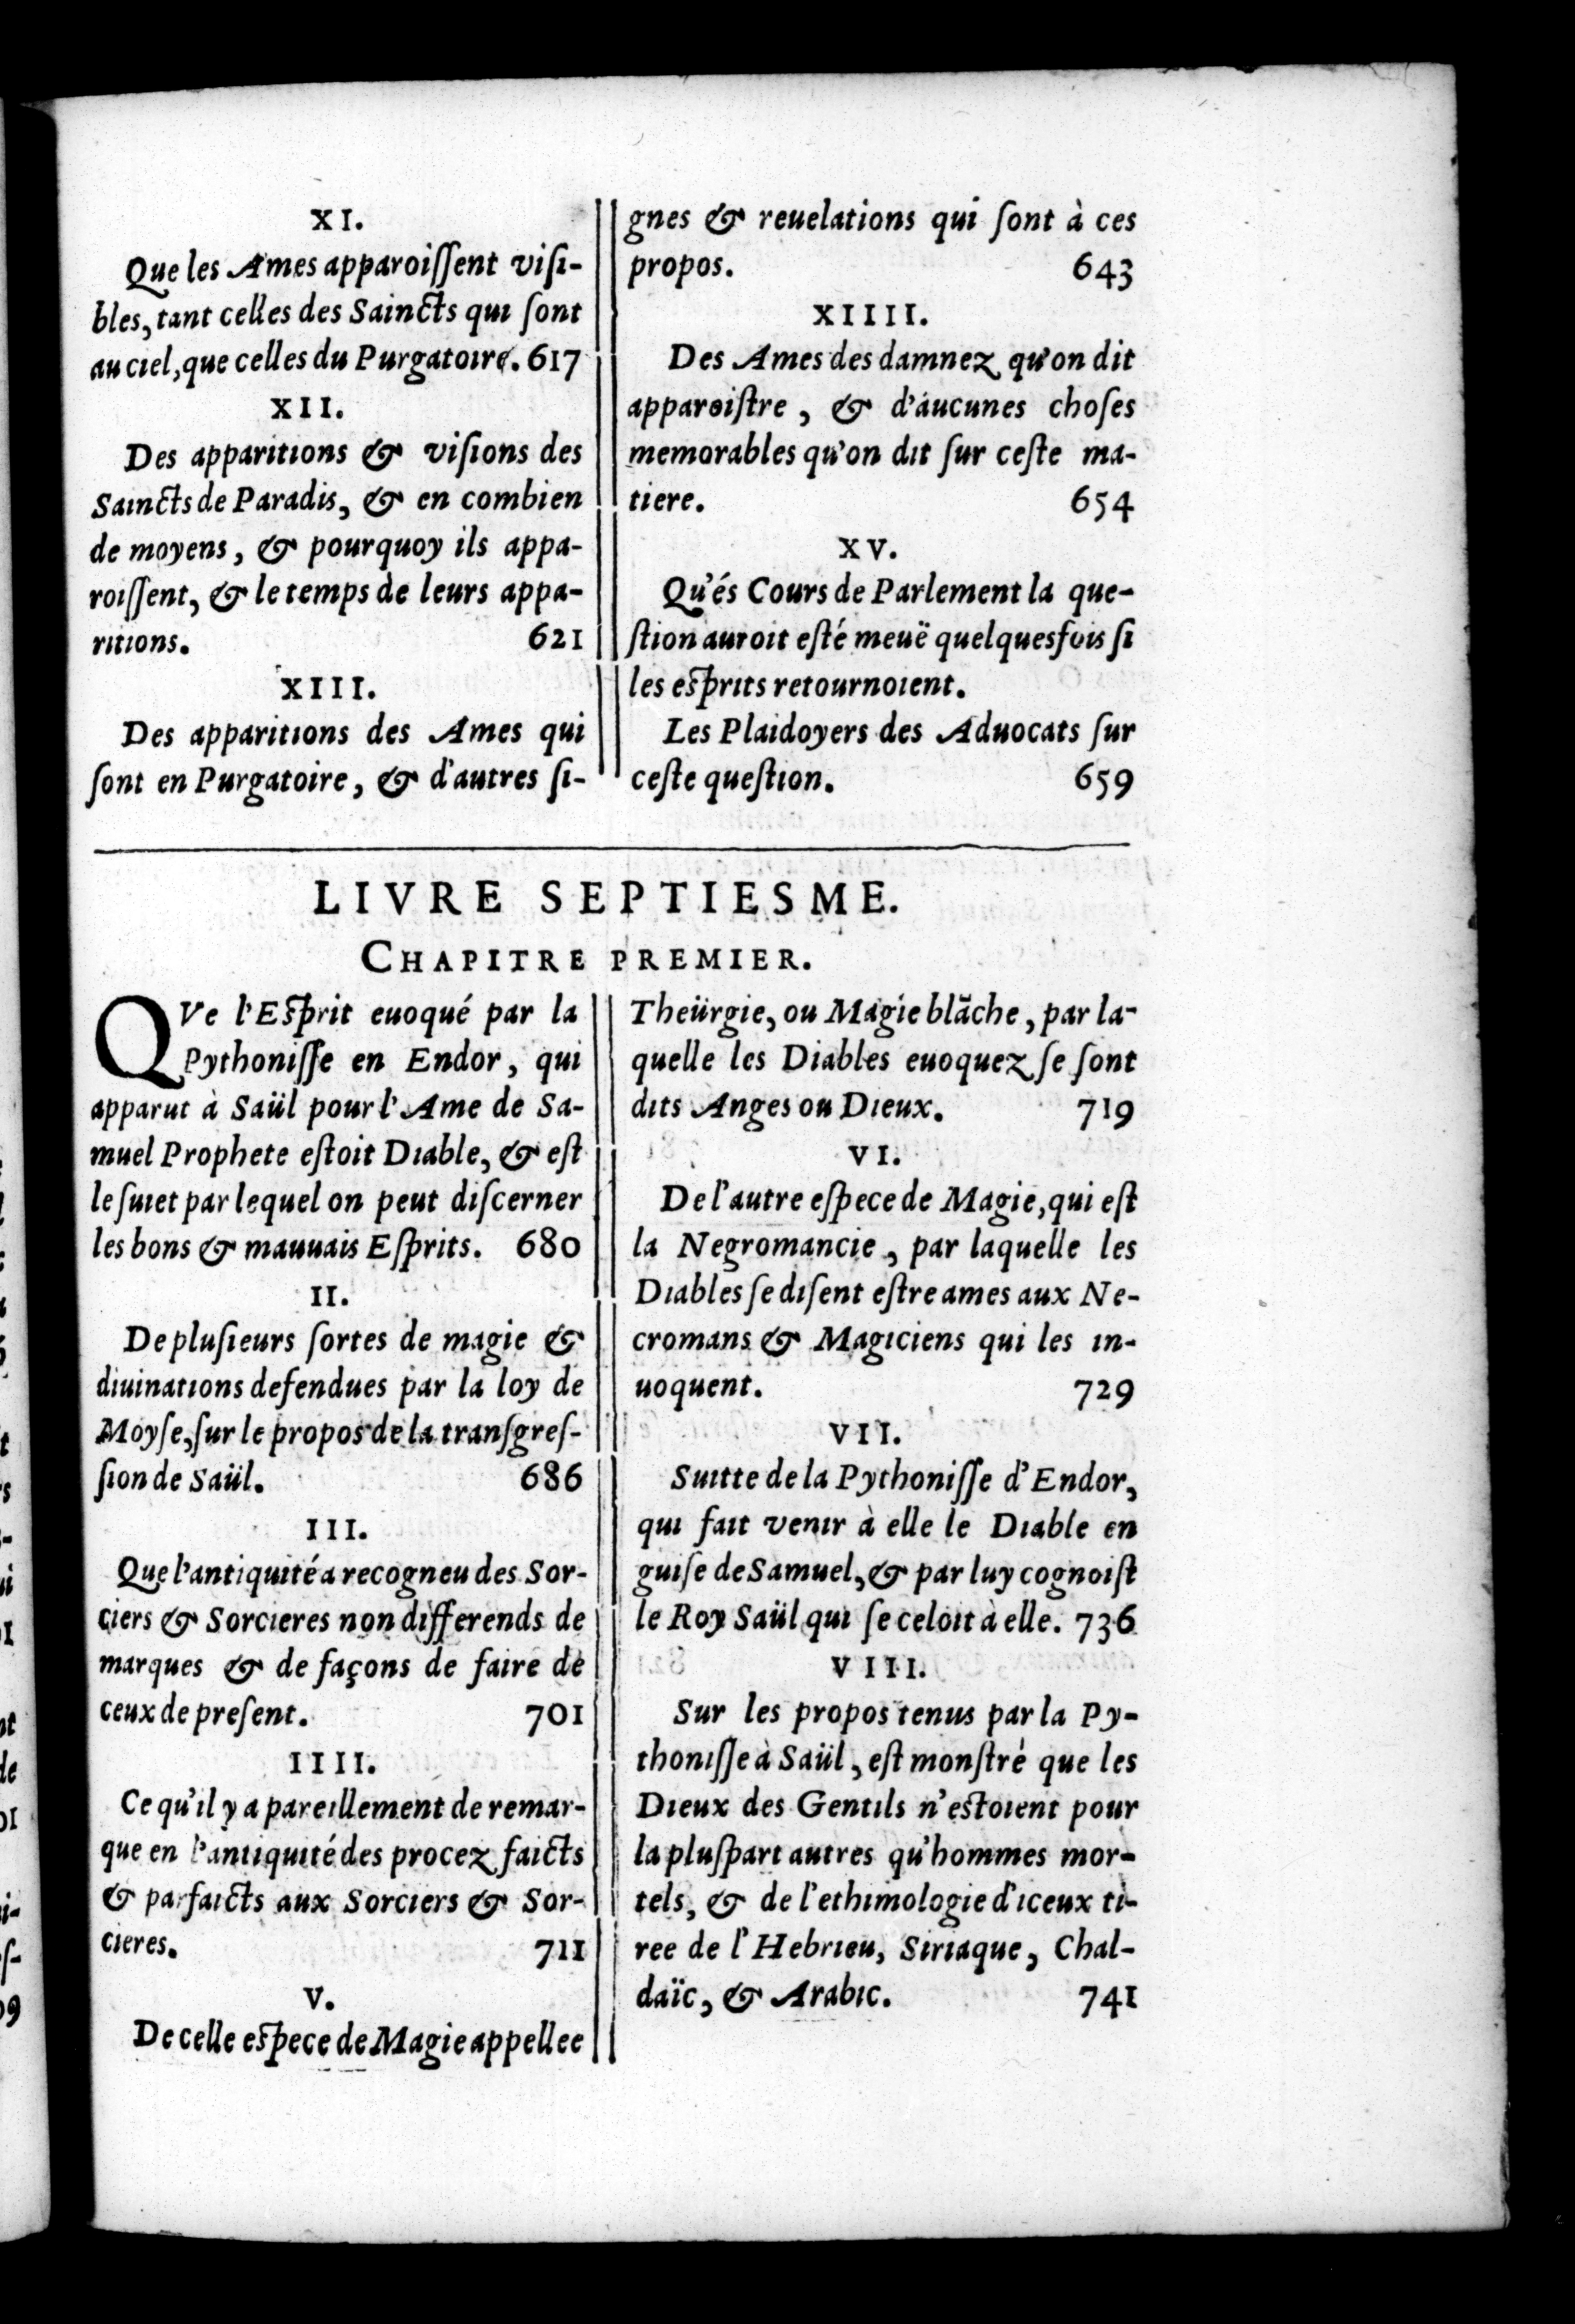 XI.
Que les Ames apparoiſſent viſi-
bles, tant celles des Saincts qui ſont
au ciel, que celles du Purgatoire. 617
XII.
Des apparitions & viſions des
Saincts de Paradis, & en combien
de moyens, & pourquoy ils appa-
roiſſent, & le temps de leurs appa-
ritions. 621
XIII.
Des apparitions des Ames qui
ſont en Purgatoire, & d'autres ſi-
gnes & reuelations qui ſont à ces
propos. 643
XIIII.
Des Ames des damnez qu'on dit
apparoiſtre, & d'aucunes choſes
memorables qu'on dit ſur ceſte ma-
tiere. 654
XV.
Qu'és Cours de Parlement la que-
ſtion auroit eſté meuë quelquesfois ſi
les eſprits retournoient.
Les Plaidoyers des Aduocats ſur
ceſte queſtion. 659
LIVRE SEPTIESME.
CHAPITRE PREMIER.
QVe l'Eſprit euoqué par la
Pythoniſſe en Endor, qui
apparut à Saül pour l'Ame de Sa-
muel Prophete eſtoit Diable, & eſt
le ſuiet par lequel on peut diſcerner
les bons & mauuais Eſprits. 680
II.
De pluſieurs ſortes de magie &
diuinations defendues par la loy de
Moyſe, ſur le propos de la tranſgreſ-
ſion de Saül. 686
III.
Que l'antiquité a recogneu des Sor-
ciers & Sorcieres non differends de
marques & de façons de faire de
ceux de preſent. 701
IIII.
Ce qu'il y a pareillement de remar-
que en l'antiquité des procez faicts
& parfaicts aux Sorciers & Sor-
cieres. 711
V.
De celle eſpece de Magie appellee
Theürgie, ou Magie blãche, par la-
quelle les Diables euoquez ſe ſont
dits Anges ou Dieux. 719
VI.
De l'autre eſpece de Magie, qui eſt
la Negromancie, par laquelle les
Diables ſe diſent eſtre ames aux Ne-
cromans & Magiciens qui les in-
uoquent. 729
VII.
Suitte de la Pythoniſſe d'Endor,
qui fait venir à elle le Diable en
guiſe de Samuel, & par luy cognoiſt
le Roy Saül qui ſe celoit à elle. 736
VIII.
Sur les propos tenus par la Py-
thoniſſe à Saül, eſt monſtré que les
Dieux des Gentils n'eſtoient pour
la pluſpart autres qu'hommes mor-
tels, & de l'ethimologie d'iceux ti-
ree de l'Hebrieu, Siriaque, Chal-
daïc, & Arabic. 741